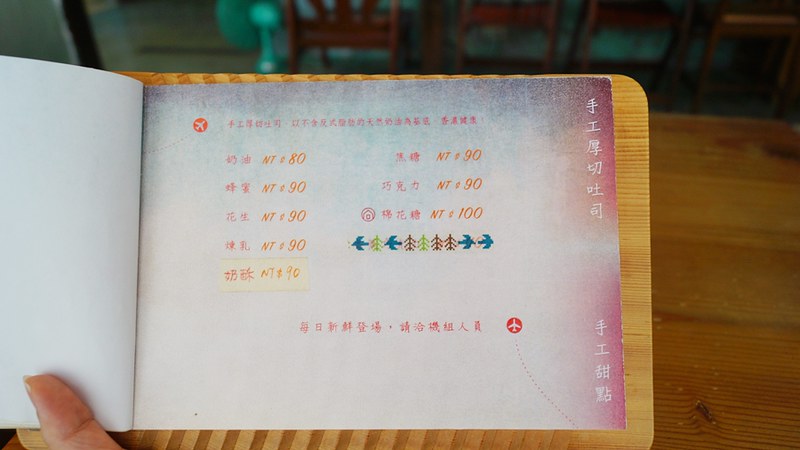 手工厚切吐司
手工厚切吐司，以不含反式脂肪的天然奶油為基底，香濃健康！
奶油 NT$80
蜂蜜 NT$90
花生 NT$90
煉乳 NT$90
奶酥 NT$90
黑糖 NT$90
巧克力 NT$90
棉花糖 NT$100
手工甜點
每日新鮮登場，請洽機組人員